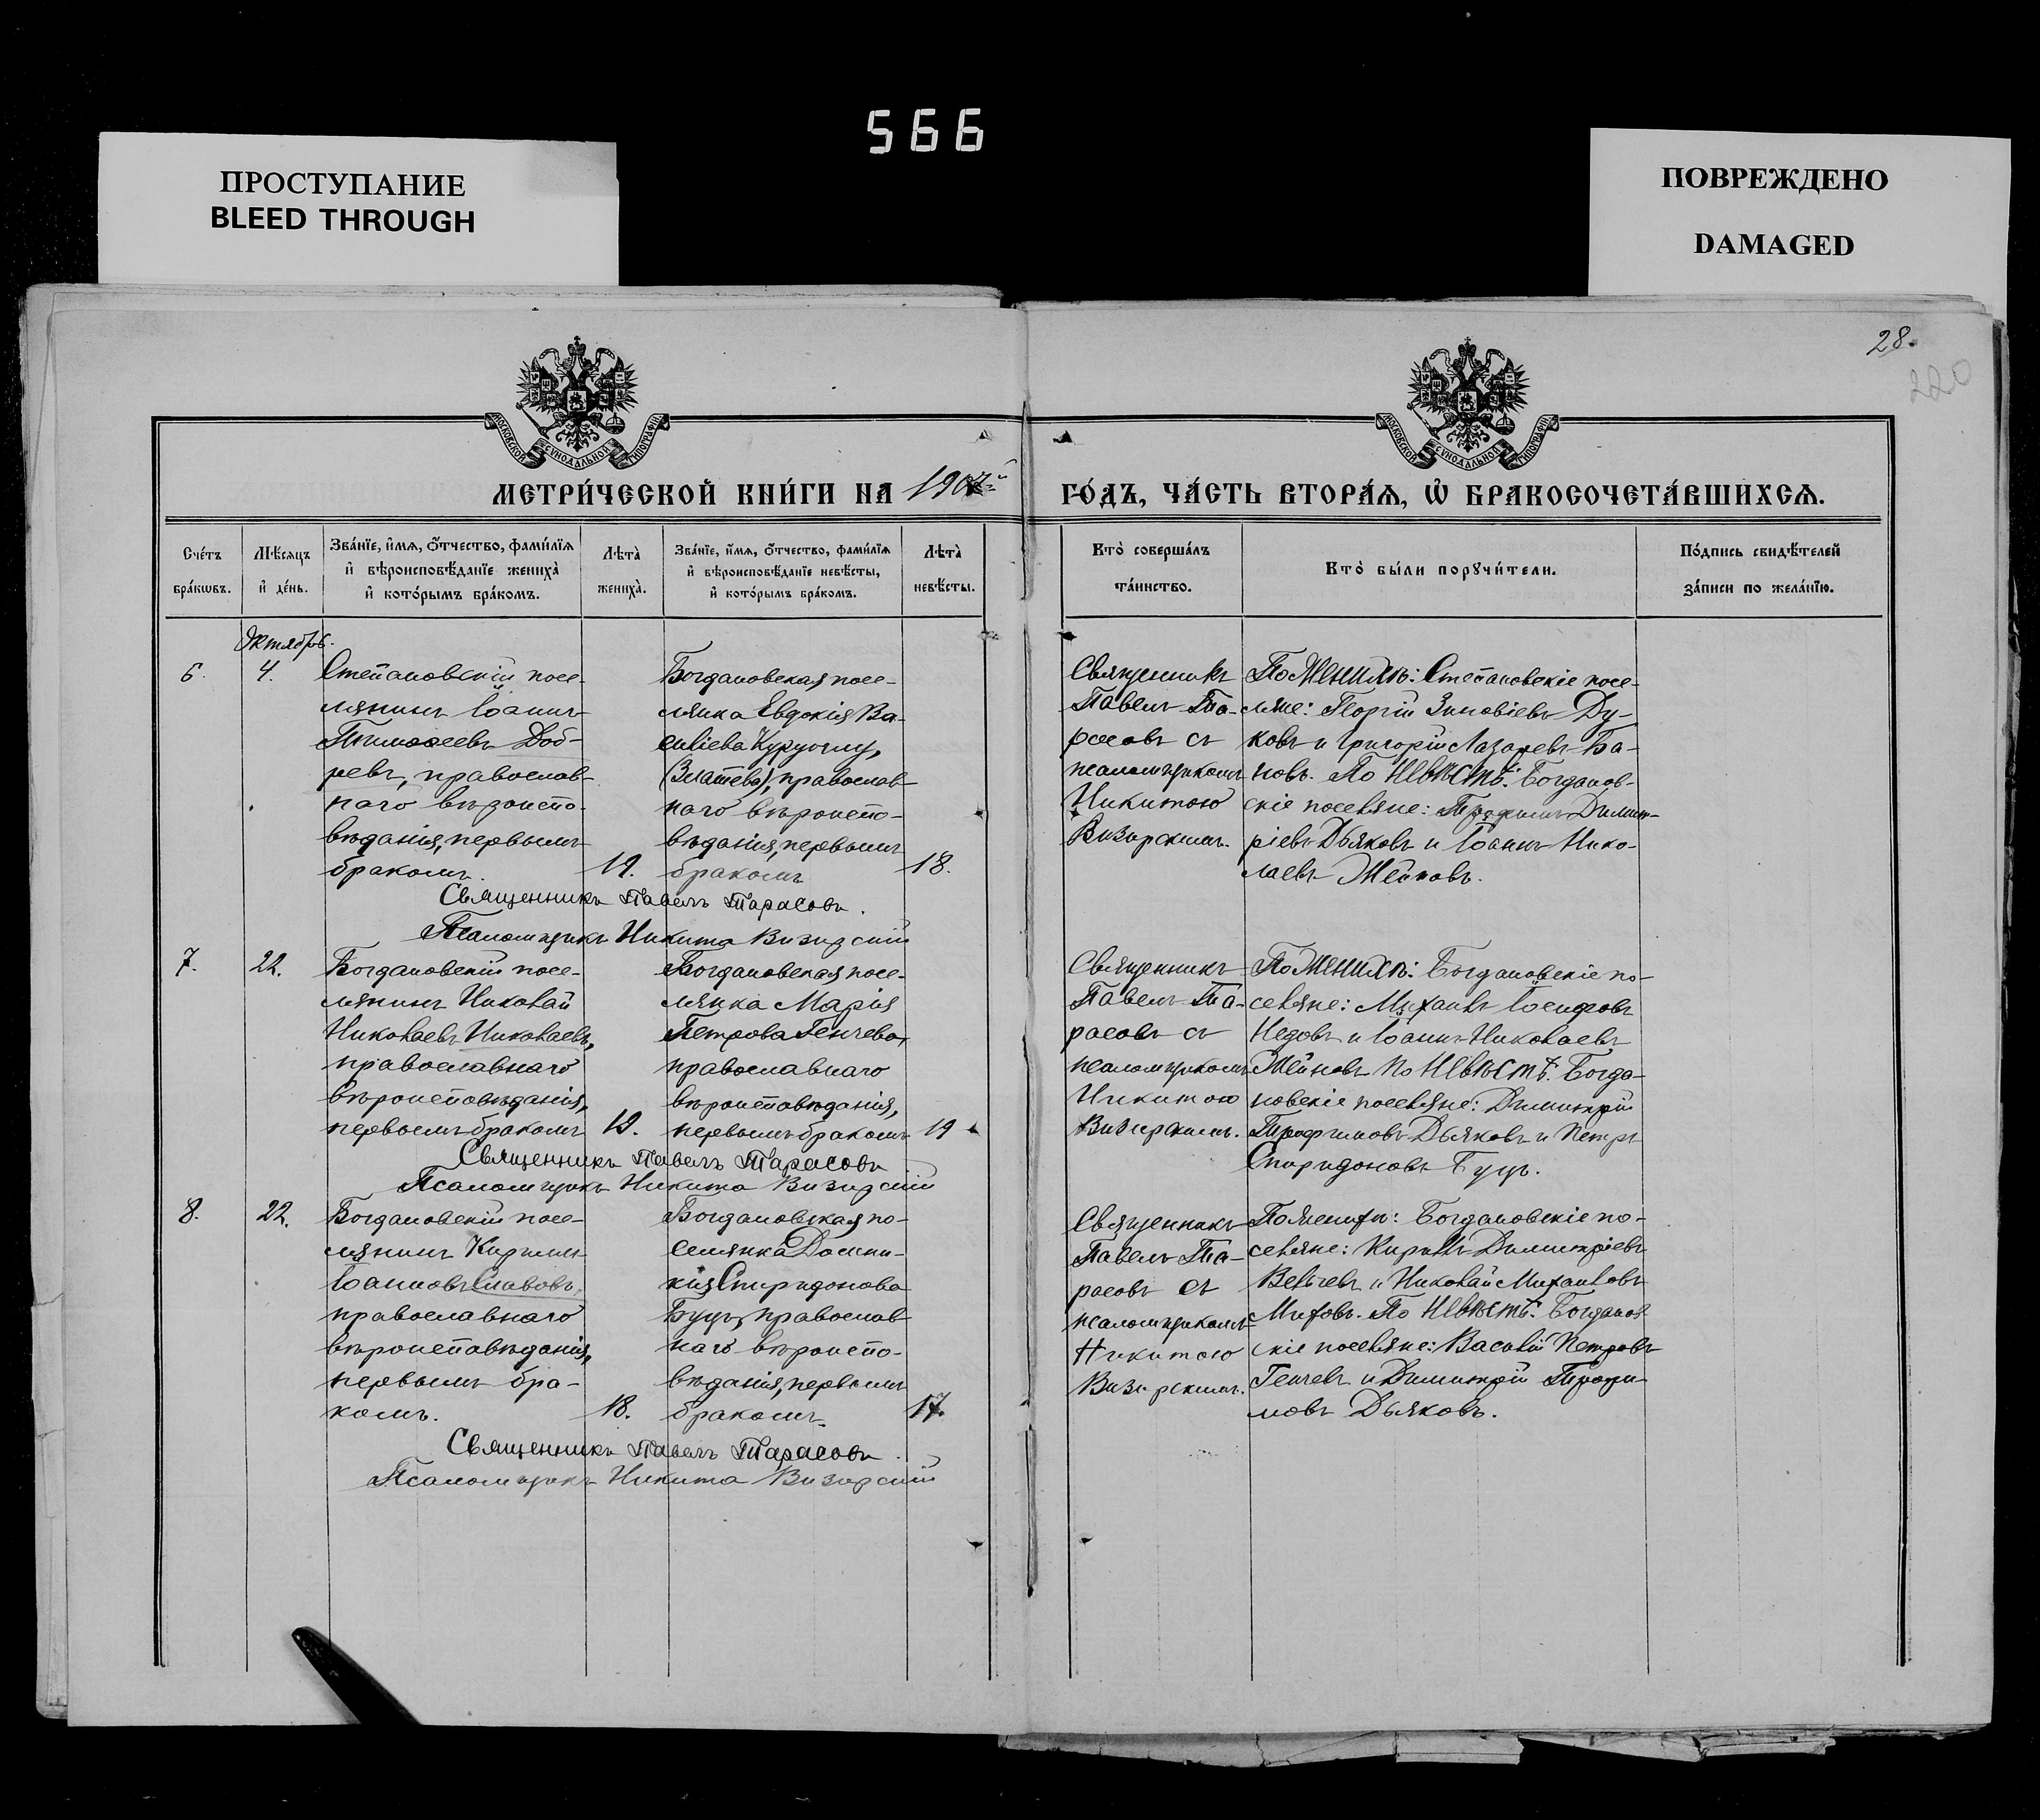 566
ПРОСТУПАНИЕ
BLEED THROUGH
ПОВРЕЖДЕНО
DAMAGED
28.
220
МОСКОВСКОЙ СѴНОДАЛЬНОЙ ТИПОГРАФІИ
МОСКОВСКОЙ СѴНОДАЛЬНОЙ ТИПОГРАФІИ
МЕТРИ́ЧЕСКОЙ КНИ́ГИ НА
ГО́ДЪ, ЧА́СТЬ ВТОРА́Ѧ, Ѡ҆ БРАКОСОЧЕТА́ВШИХСѦ.
Сче́тъ
бра́кωвъ.
Мѣ́сяцъ
и҆ де́нь.
Зва́нїе, и҆́мя, о҆́тчество, фами́лїя
и҆ вѣроисповѣ́данїе жениха̀
и҆ кото́рымъ бра́комъ.
Лѣта̀
жениха̀.
Зва́нїе, и҆́мя, о҆́тчество, фами́лїя
и҆ вѣроисповѣ́данїе невѣ́сты,
и҆ кото́рымъ бра́комъ.
Лѣта̀
невѣ́сты.
Кто̀ соверша́лъ
та́инство.
Кто̀ бы́ли порꙋчи́тели.
По́дпись свидѣ́телей
за́писи по жела́нїю.
Октябрь.
6.
4.
Степановскій посе-
лянинъ Іоаннъ
Тимоѳеевъ Доб-
ревъ, православ-
наго вѣроиспо-
вѣданія, первымъ
бракомъ.
19.
Богдановская посе-
лянка Евдокія Ва-
силіева
(Златева), православ-
наго вѣроиспо-
вѣданія, первымъ
бракомъ
18.
Священникъ
Павелъ Та-
расовъ съ
псаломщикомъ
Никитою
Визирскимъ.
По женихѣ: Степановскіе посе-
ляне: Георгій Зиновіевъ Ду-
ковъ и Григорій Лазаревъ Ба-
новъ. По невѣстѣ: Богданов-
скіе поселяне: Трофимъ Димит-
ріевъ Дьяковъ и Іоаннъ Нико-
лаевъ Жейновъ.
Священникъ Павелъ Тарасовъ.
Псаломщикъ Никита Визирскій
7.
22.
Богдановскій посе-
лянинъ Николай
Николаевъ Николаевъ,
православнаго
вѣроисповѣданія,
первымъ бракомъ
19.
Богдановская посе-
лянка Марія
Петрова Генчева,
православнаго
вѣроисповѣданія,
первымъ бракомъ
19
Священникъ
Павелъ Та-
расовъ съ
псаломщикомъ
Никитою
Визирскимъ.
По женихѣ: Богдановскіе по-
селяне: Михаилъ Іосифовъ
Недовъ и Іоаннъ Николаевъ
Жейновъ По невѣстѣ: Богда-
новскіе поселяне: Димитрій
Трофимовъ Дьяковъ и Петръ
Спиридоновъ Буцъ.
Священникъ Павелъ Тарасовъ
Псаломщикъ Никита Визирскій
8.
22.
Богдановскій посе-
лянинъ Кириллъ
Іоанновъ Славовъ,
православнаго
вѣроисповѣданія,
первымъ бра-
комъ.
18.
Богдановская по-
селянка Домни-
кія Спиридонова
Буцъ, православ-
наго вѣроиспо-
вѣданія, первымъ
бракомъ.
17.
Священникъ
Павелъ Та-
расовъ съ
псаломщикомъ
Никитою
Визирскимъ.
По женихѣ: Богдановскіе по-
селяне: Кириллъ Димитріевъ
Велчевъ и Николай Михаиловъ
Миховъ. По невѣстѣ: Богданов-
скіе поселяне: Василій Петровъ
Генчевъ и Димитрій Трофи-
мовъ Дьяковъ.
Священникъ Павелъ Тарасовъ.
Псаломщикъ Никита Визирскій